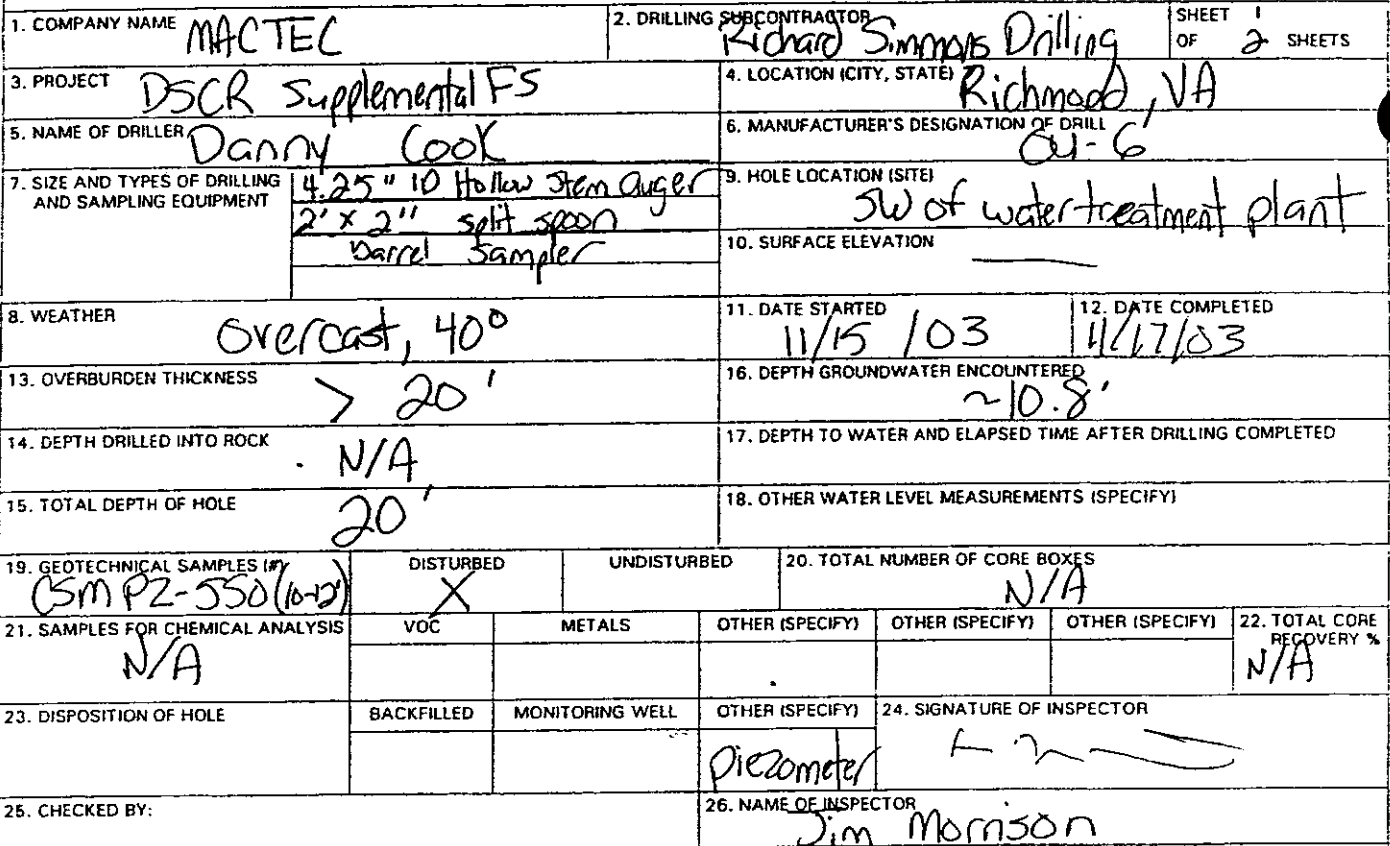 1. COMPANY NAME MACTEC
2. DRILLING SUBCONTRACTOR Richard Simmons Drilling
SHEET 1
OF 2 SHEETS
3. PROJECT DSCR Supplemental FS
4. LOCATION (CITY, STATE) Richmond, VA
5. NAME OF DRILLER Danny Cook
6. MANUFACTURER'S DESIGNATION OF DRILL
7. SIZE AND TYPES OF DRILLING
AND SAMPLING EQUIPMENT
4.25" ID Hollow Stem Auger
2' x 2" split spoon
barrel sampler
9. HOLE LOCATION (SITE)
SW of water treatment plant
10. SURFACE ELEVATION —
8. WEATHER Overcast, 40°
11. DATE STARTED
11/15/03
12. DATE COMPLETED
11/17/03
13. OVERBURDEN THICKNESS > 20'
16. DEPTH GROUNDWATER ENCOUNTERED
~10.8'
14. DEPTH DRILLED INTO ROCK
N/A
17. DEPTH TO WATER AND ELAPSED TIME AFTER DRILLING COMPLETED
15. TOTAL DEPTH OF HOLE 20'
18. OTHER WATER LEVEL MEASUREMENTS (SPECIFY)
19. GEOTECHNICAL SAMPLES (#)
CSMPZ-55D (10-12')
DISTURBED
X
UNDISTURBED
20. TOTAL NUMBER OF CORE BOXES
N/A
21. SAMPLES FOR CHEMICAL ANALYSIS
N/A
VOC
METALS
OTHER (SPECIFY)
OTHER (SPECIFY)
OTHER (SPECIFY)
22. TOTAL CORE
RECOVERY %
N/A
23. DISPOSITION OF HOLE
BACKFILLED
MONITORING WELL
OTHER (SPECIFY)
piezometer
24. SIGNATURE OF INSPECTOR
25. CHECKED BY:
26. NAME OF INSPECTOR
Jim Morrison